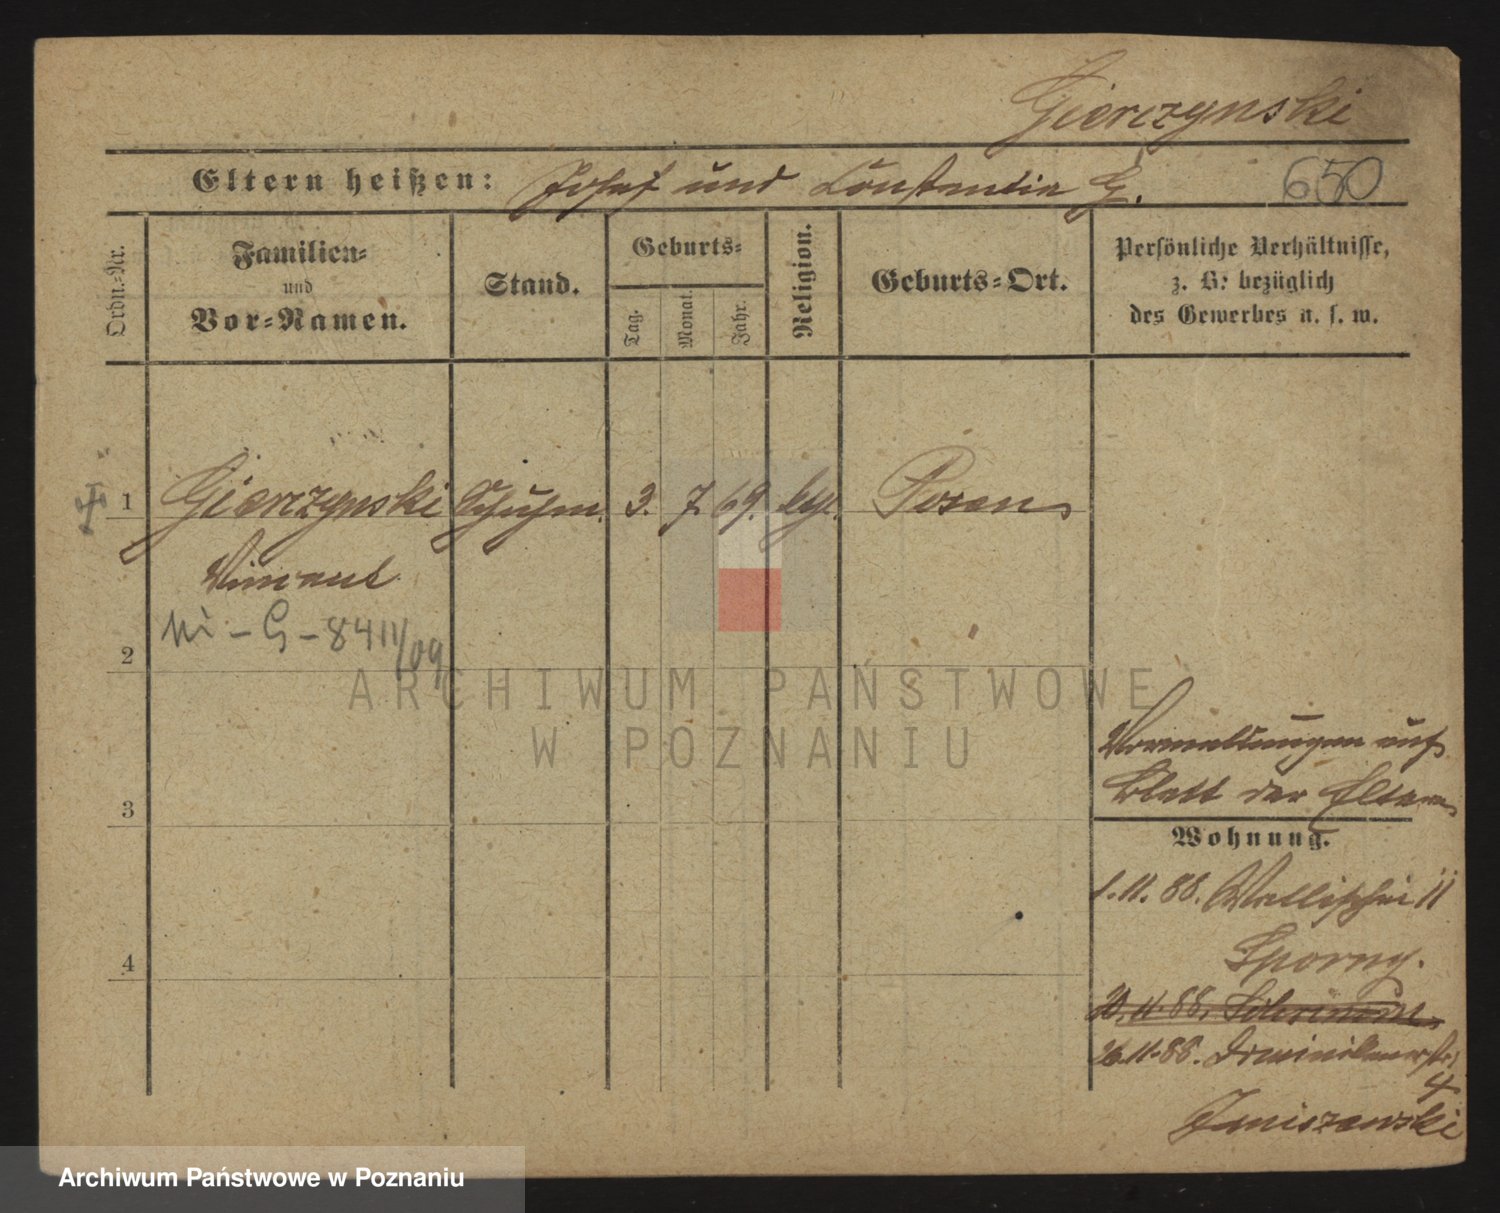 Gierczynski
Eltern heißen: Josef und Constantia G. 650
Ordn.-Nr.
Familien-
und
Vor-Namen.
Stand.
Geburts-
Tag.
Monat.
Jahr.
Religion.
Geburts-Ort.
Persönliche Verhältnisse,
z. B. bezüglich
des Gewerbes u. s. w.
1 Gierczynski Schuhm. 3. 7. 69. kth. Posen
Vincent
G-8411/09
2
3
4
Vormeldungen auf
Blatt der Eltern
Wohnung.
1.11.88. Wallischei 11
Sporny.
20.11.88.
26.11.88. Dominikanerstr.
4
Janiszewski
ARCHIWUM PAŃSTWOWE
W POZNANIU
Archiwum Państwowe w Poznaniu